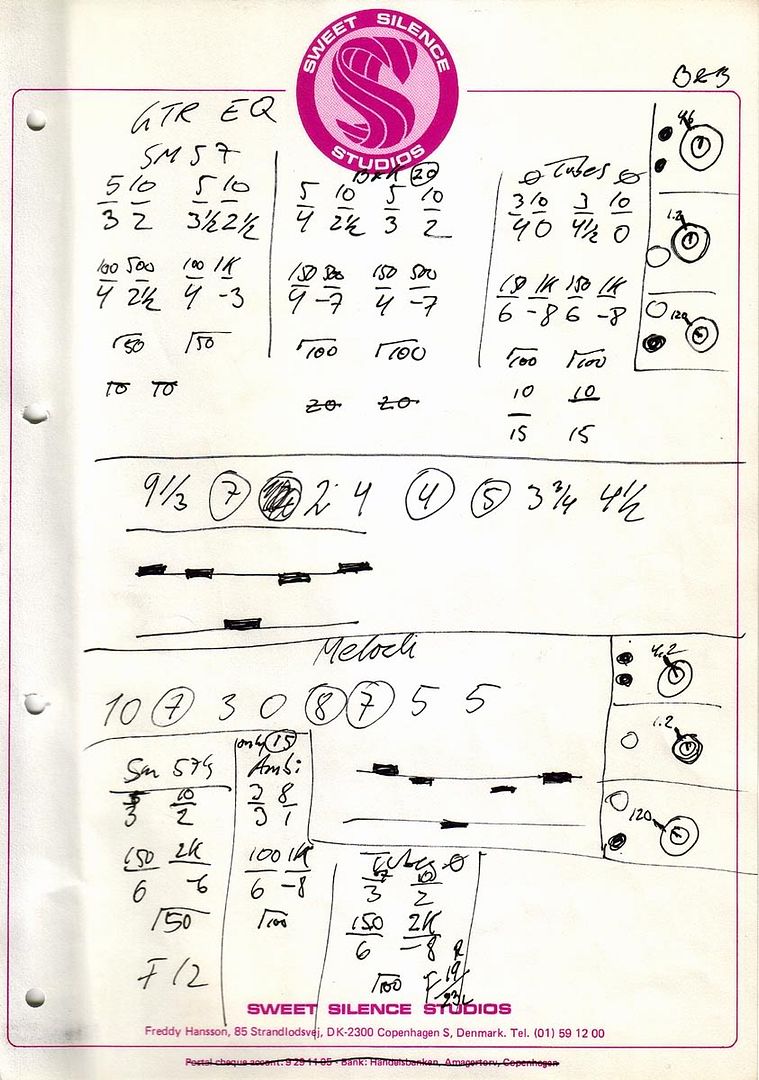 SWEET SILENCE STUDIOS
B&B
GTR EQ
SM 57
5/3 10/2 5/3½ 10/2½
100/4 500/2½ 100/4 1K/-3
√50 √50
10 10
B&K 20
5/4 10/2½ 5/3 10/2
150/4 500/-7 150/4 500/-7
√100 √100
20 20
Ø Tubes Ø
3/4 10/0 3/4½ 10/0
150/6 1K/-8 150/6 1K/-8
√100 √100
10/15 10/15
1.2
120
9 1/3 7 2 4 4 5 3 3/4 4½
Melodi
10 7 3 0 8 7 5 5
4.2
1.2
120
Sm 57's
5/3 10/2
150/6 2K/-6
√50
F 12
only 15
Ambi
3/3 8/1
100/6 1K/-8
√100
Tubes Ø
10/2
150/6 2K/-8
√100
R
F 19/23 L
SWEET SILENCE STUDIOS
Freddy Hansson, 85 Strandlodsvej, DK-2300 Copenhagen S, Denmark. Tel. (01) 59 12 00
Postal cheque account: 9 29 11 05 - Bank: Handelsbanken, Amagertorv, Copenhagen